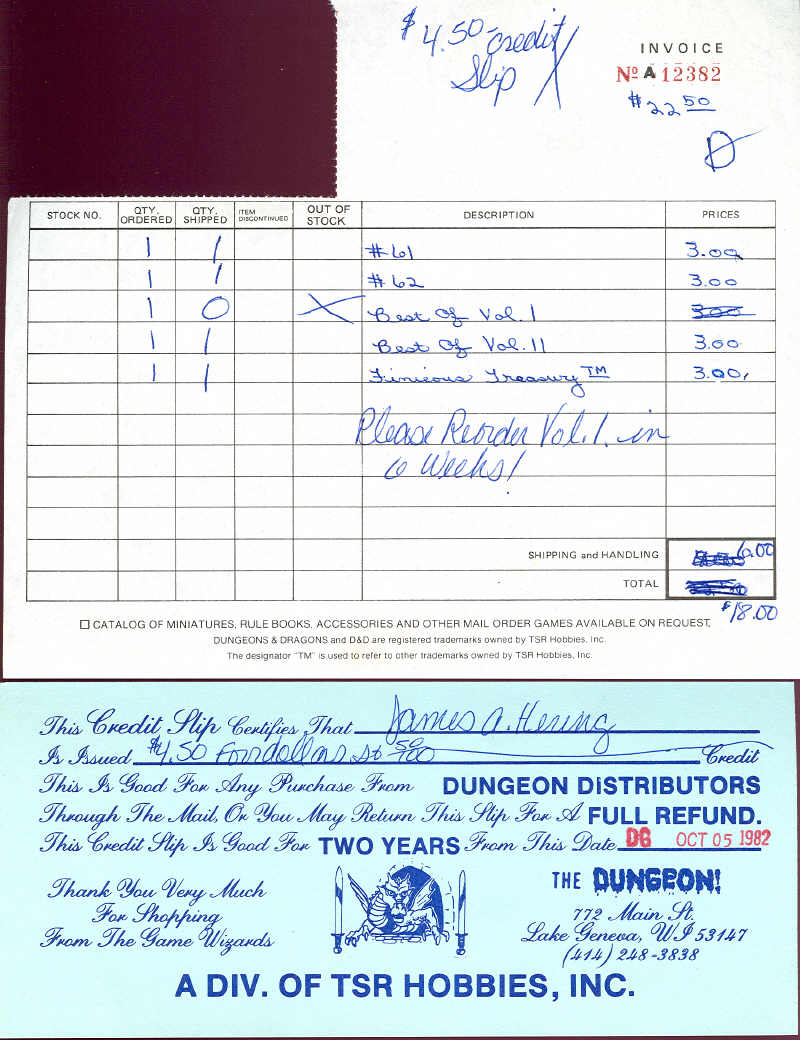 $4.50 credit
Slip
INVOICE
Nº A 12382
$22 50
STOCK NO. QTY. ORDERED QTY. SHIPPED ITEM DISCONTINUED OUT OF STOCK DESCRIPTION PRICES
1 1 #61 3.00
1 1 #62 3.00
1 0 X Best Of Vol. I 3.00
1 1 Best Of Vol. II 3.00
1 1 Finieous Treasury™ 3.00
Please Reorder Vol. 1. in
6 Weeks!
SHIPPING and HANDLING 6.00
TOTAL
$18.00
☐ CATALOG OF MINIATURES, RULE BOOKS, ACCESSORIES AND OTHER MAIL ORDER GAMES AVAILABLE ON REQUEST.
DUNGEONS & DRAGONS and D&D are registered trademarks owned by TSR Hobbies, Inc.
The designator "TM" is used to refer to other trademarks owned by TSR Hobbies, Inc.
This Credit Slip Certifies That James A. Hering
Is Issued $4.50 Four dollars & 50/100 Credit
This Is Good For Any Purchase From DUNGEON DISTRIBUTORS
Through The Mail, Or You May Return This Slip For A FULL REFUND.
This Credit Slip Is Good For TWO YEARS From This Date DG OCT 05 1982
Thank You Very Much
For Shopping
From The Game Wizards
THE DUNGEON!
772 Main St.
Lake Geneva, WI 53147
(414) 248-3838
A DIV. OF TSR HOBBIES, INC.